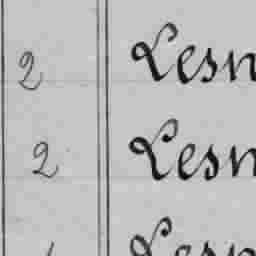 2 Lesn
2 Lesn